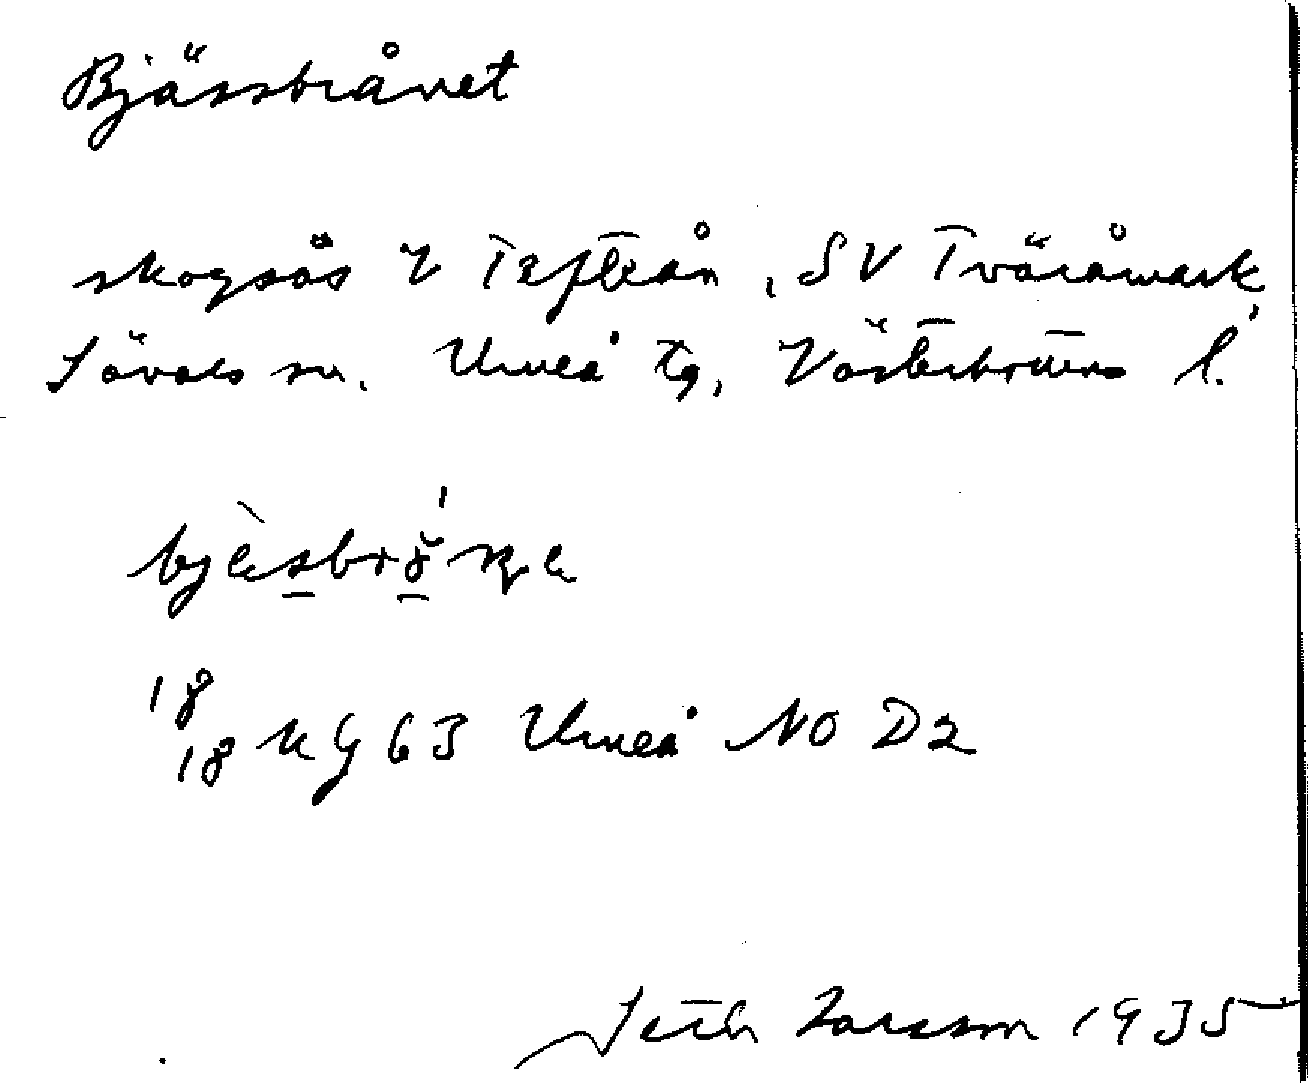 Bjässbrånet
skogsås V Tefteån, SV Tväråmark,
Sävars sn. Umeå tg, Västerbottens l.
18
18 KG 63 Umeå NO D2
Seth Larsson 1935